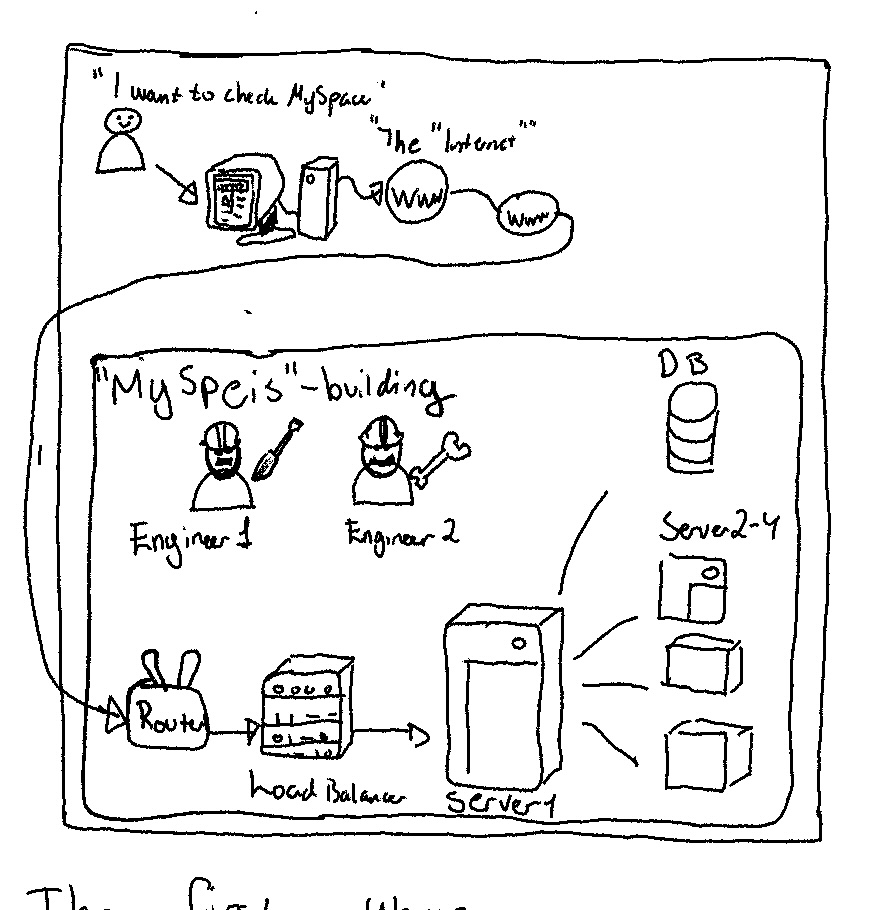 "I want to check MySpace"
"The "Internet""
Www
Www
"MySpeis"-building
DB
Engineer 1
Engineer 2
Server 2-4
Router
Load Balancer
Server 1
The first